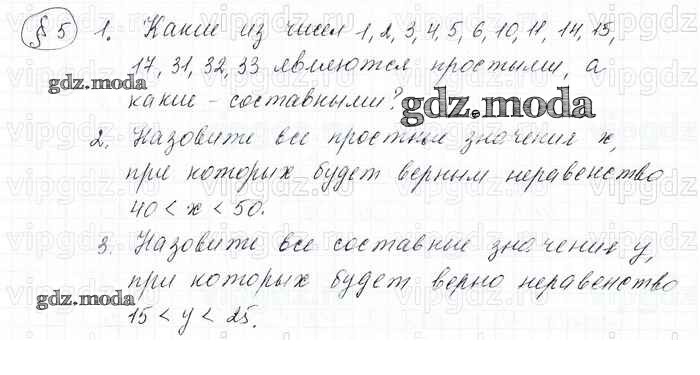 § 5 1. Какие из чисел 1, 2, 3, 4, 5, 6, 10, 11, 14, 15,
17, 31, 32, 33 являются простыми, а
gdz.moda
какие - составными?
gdz.moda
2. Назовите все простые значения x,
при которых будет верным неравенство
40 < x < 50.
3. Назовите все составные значения y,
при которых будет верно неравенство
gdz.moda
15 < y < 25.